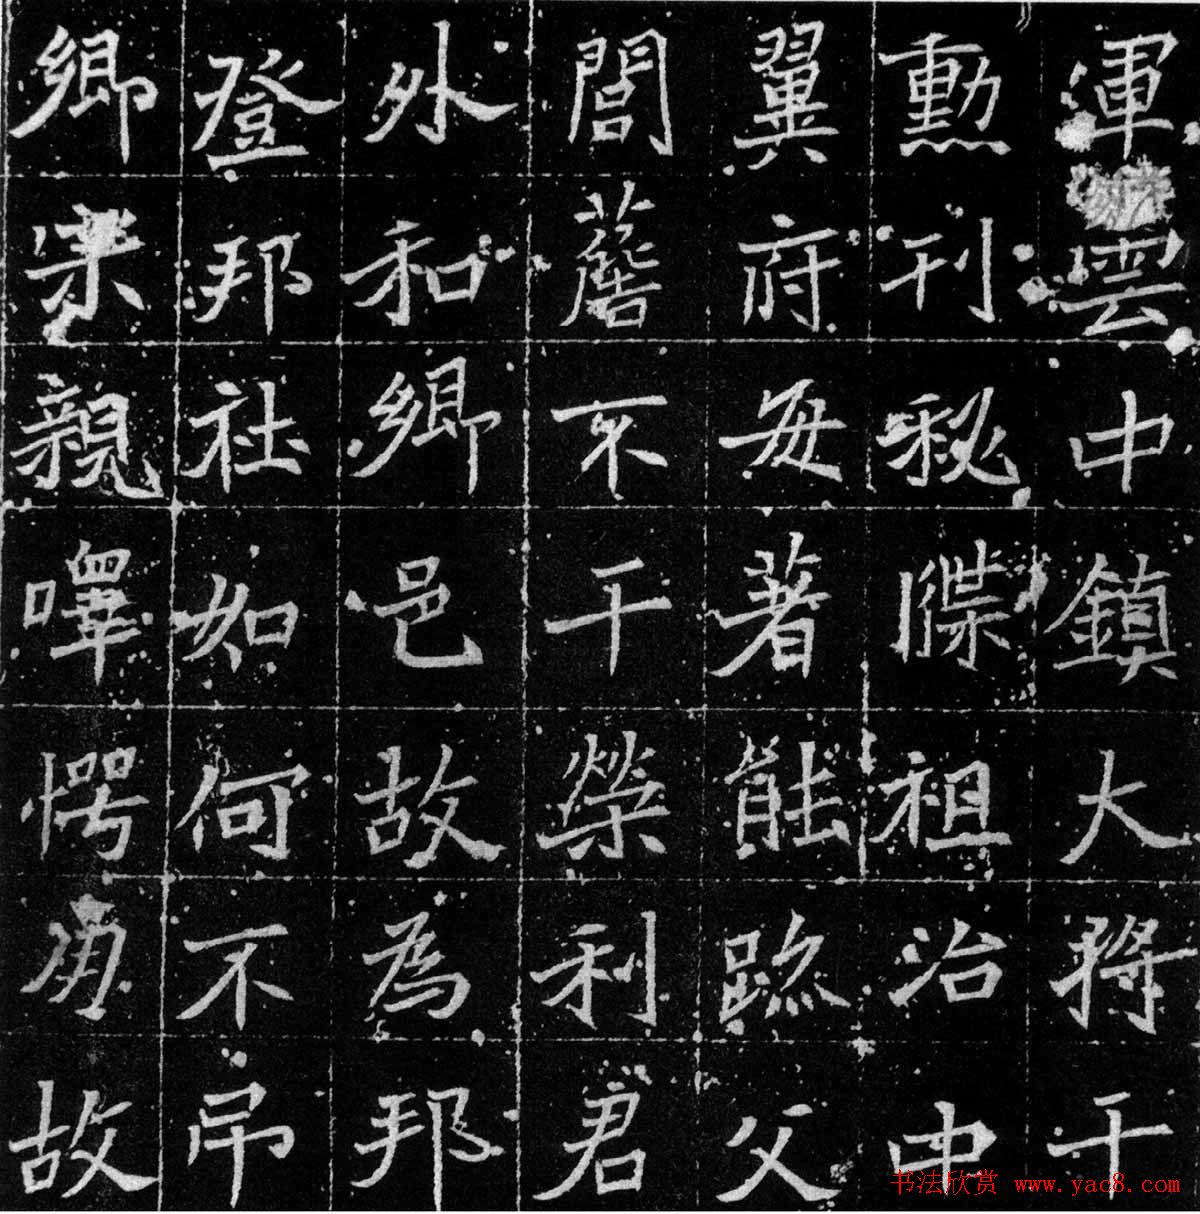 渾雲中鎮大将干
勳刊秘牒祖治中
翼府每著能跡父
閭不干榮利君
外和鄉邑故為邦
登邦社如何不吊
鄉宗親愕故
书法欣赏 www.yac8.com